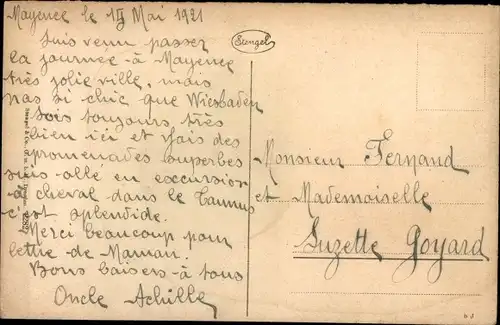 Mayence le 15 Mai 1921
Suis venu passer
la journée à Mayence
très jolie ville, mais
pas si chic que Wiesbaden
Suis toujours très
bien ici et fais des
promenades superbes
suis allé en excursion
à cheval dans le Taunus
c'est splendide.
Merci beaucoup pour
lettre de Maman.
Bons baisers à tous
Oncle Achille
Stengel
Monsieur Fernand
et Mademoiselle
Suzette Goyard